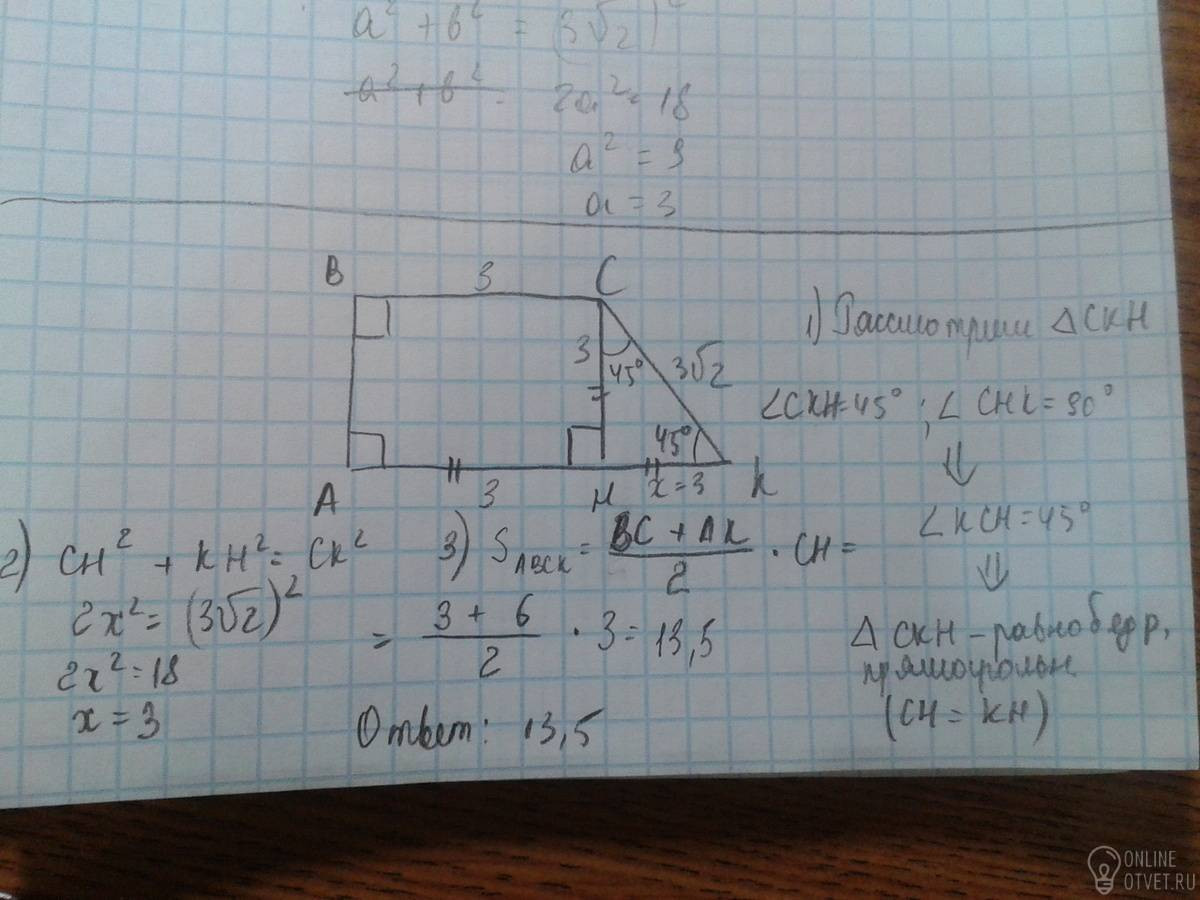 a² + b² = (3√2)²
a² + b² 2a² = 18
a² = 9
a = 3
B 3 C
3 45° 3√2
45°
A 3 H x=3 K
1) Рассмотрим △CKH
∠CKH=45° ; ∠CHK=90°
⇓
∠KCH=45°
⇓
△CKH – равнобедр,
прямоугольн
(CH = KH)
2) CH² + KH² = CK²
2x² = (3√2)²
2x² = 18
x = 3
3) S ABCK = BC + AK / 2 · CH =
= 3 + 6 / 2 · 3 = 13,5
Ответ: 13,5
ONLINE
OTVET.RU